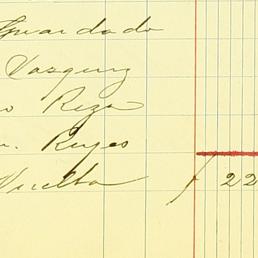 Guardado
Vasquez
o Reza
n. Reyes
Vuelta 22